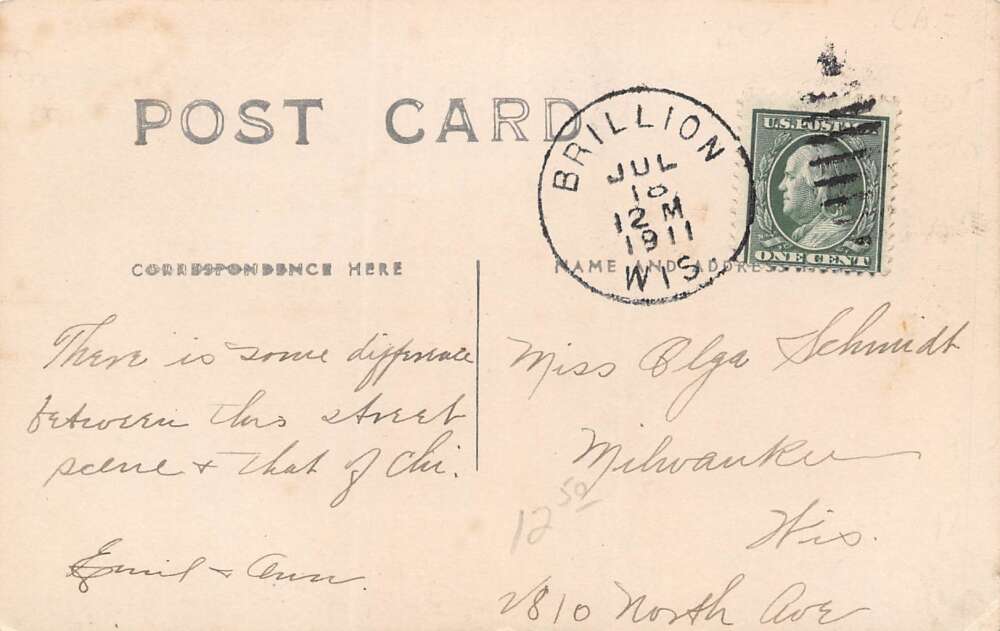 POST CARD
BRILLION
JUL
18
12 M
1911
WIS.
U.S. POSTAGE
ONE CENT
CORRESPONDENCE HERE
NAME AND ADDRESS HERE
There is some difference
between this street
scene & that of Chi.
Emil & Ann
Miss Olga Schmidt
Milwaukee
Wis.
2810 North Ave
12 50